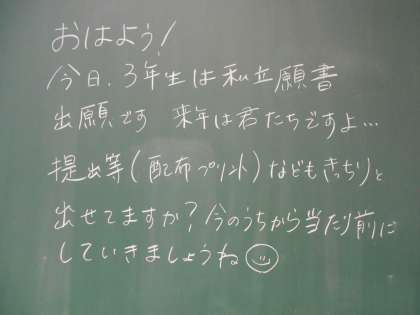 おはよう!
今日、3年生は私立願書
出願です 来年は君たちですよ…
提出等(配布プリント)などもきっちりと
出せてますか?今のうちから当たり前に
していきましょうね